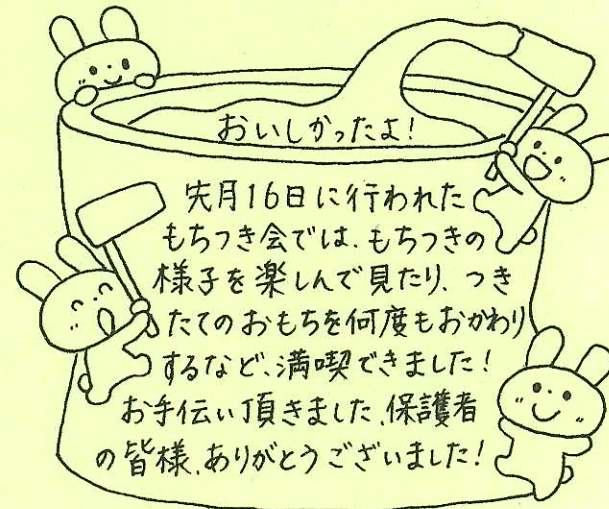 おいしかったよ!
先月16日に行われた
もちつき会では、もちつきの
様子を楽しんで見たり、つき
たてのおもちを何度もおかわり
するなど、満喫できました!
お手伝い頂きました、保護者
の皆様、ありがとうございました!